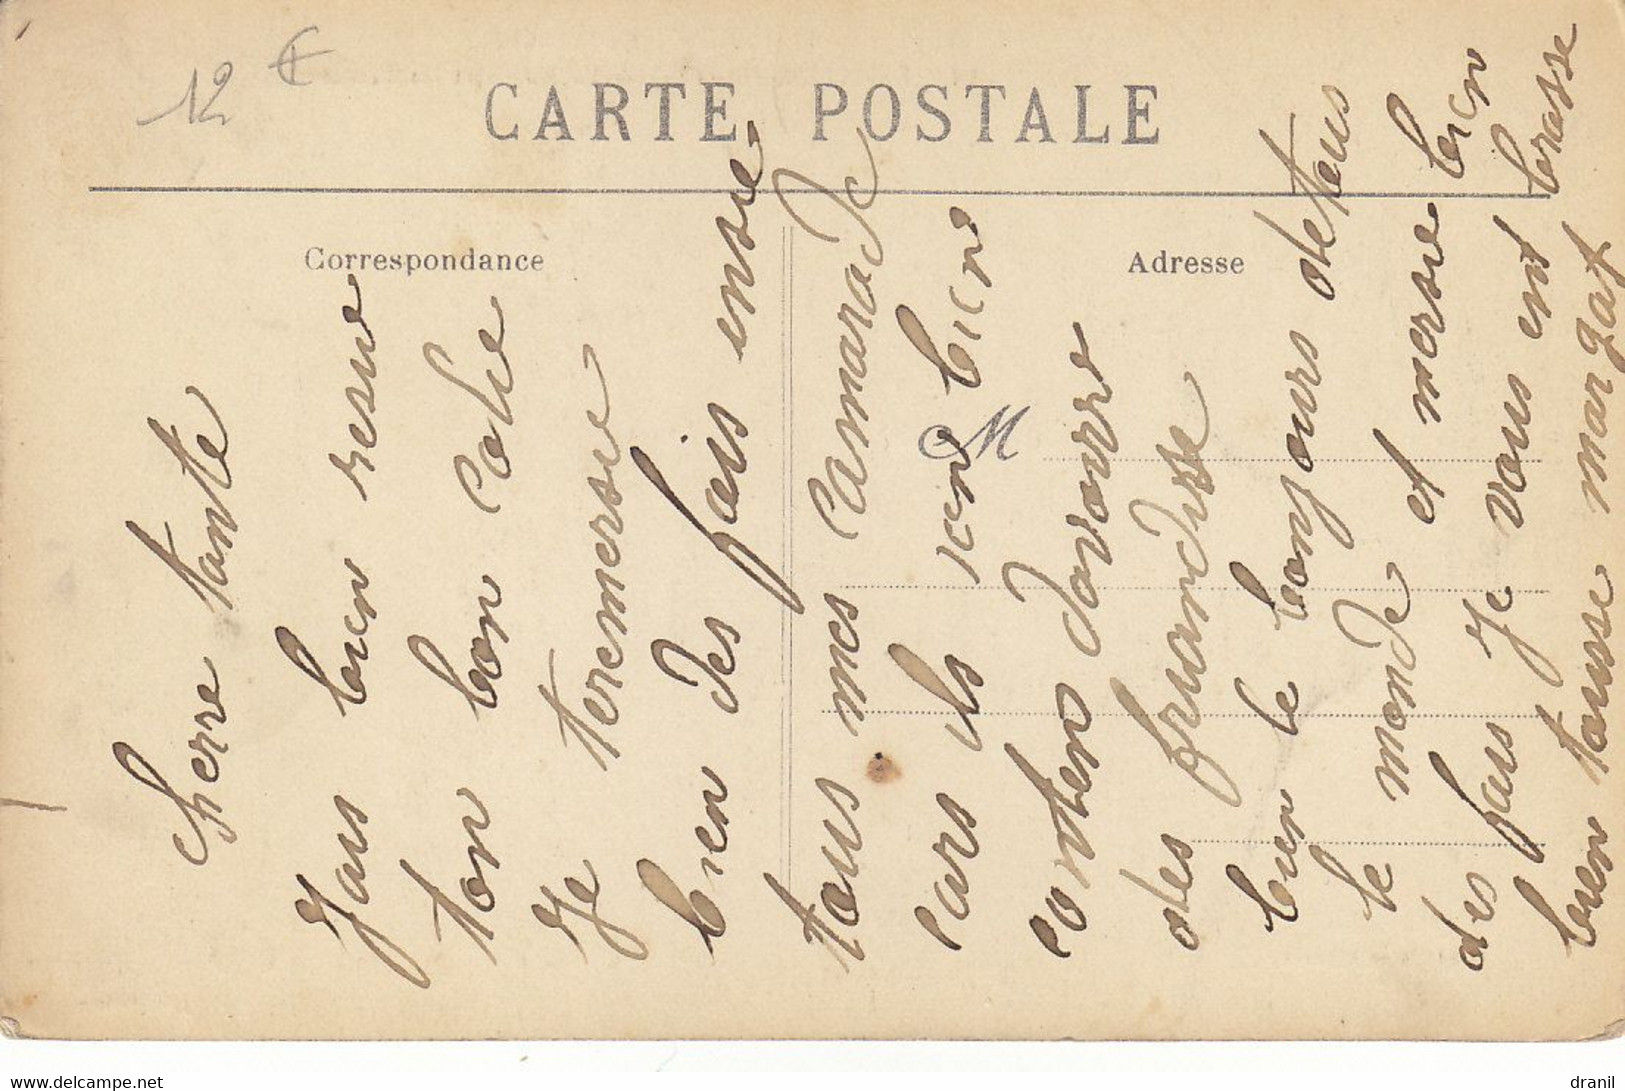 12 €
CARTE POSTALE
Correspondance
Adresse
M
cherre tante
Jais bien resue
ton bon colie
Je teremersie
bien des fais ensie
tous mes camarade
cars ils son bien
conten davoire
des friandise
bien le bonjours detous
le monde et mersie bien
des fais Je vous ent brasse
bien tausse margat
www.delcampe.net
dranil